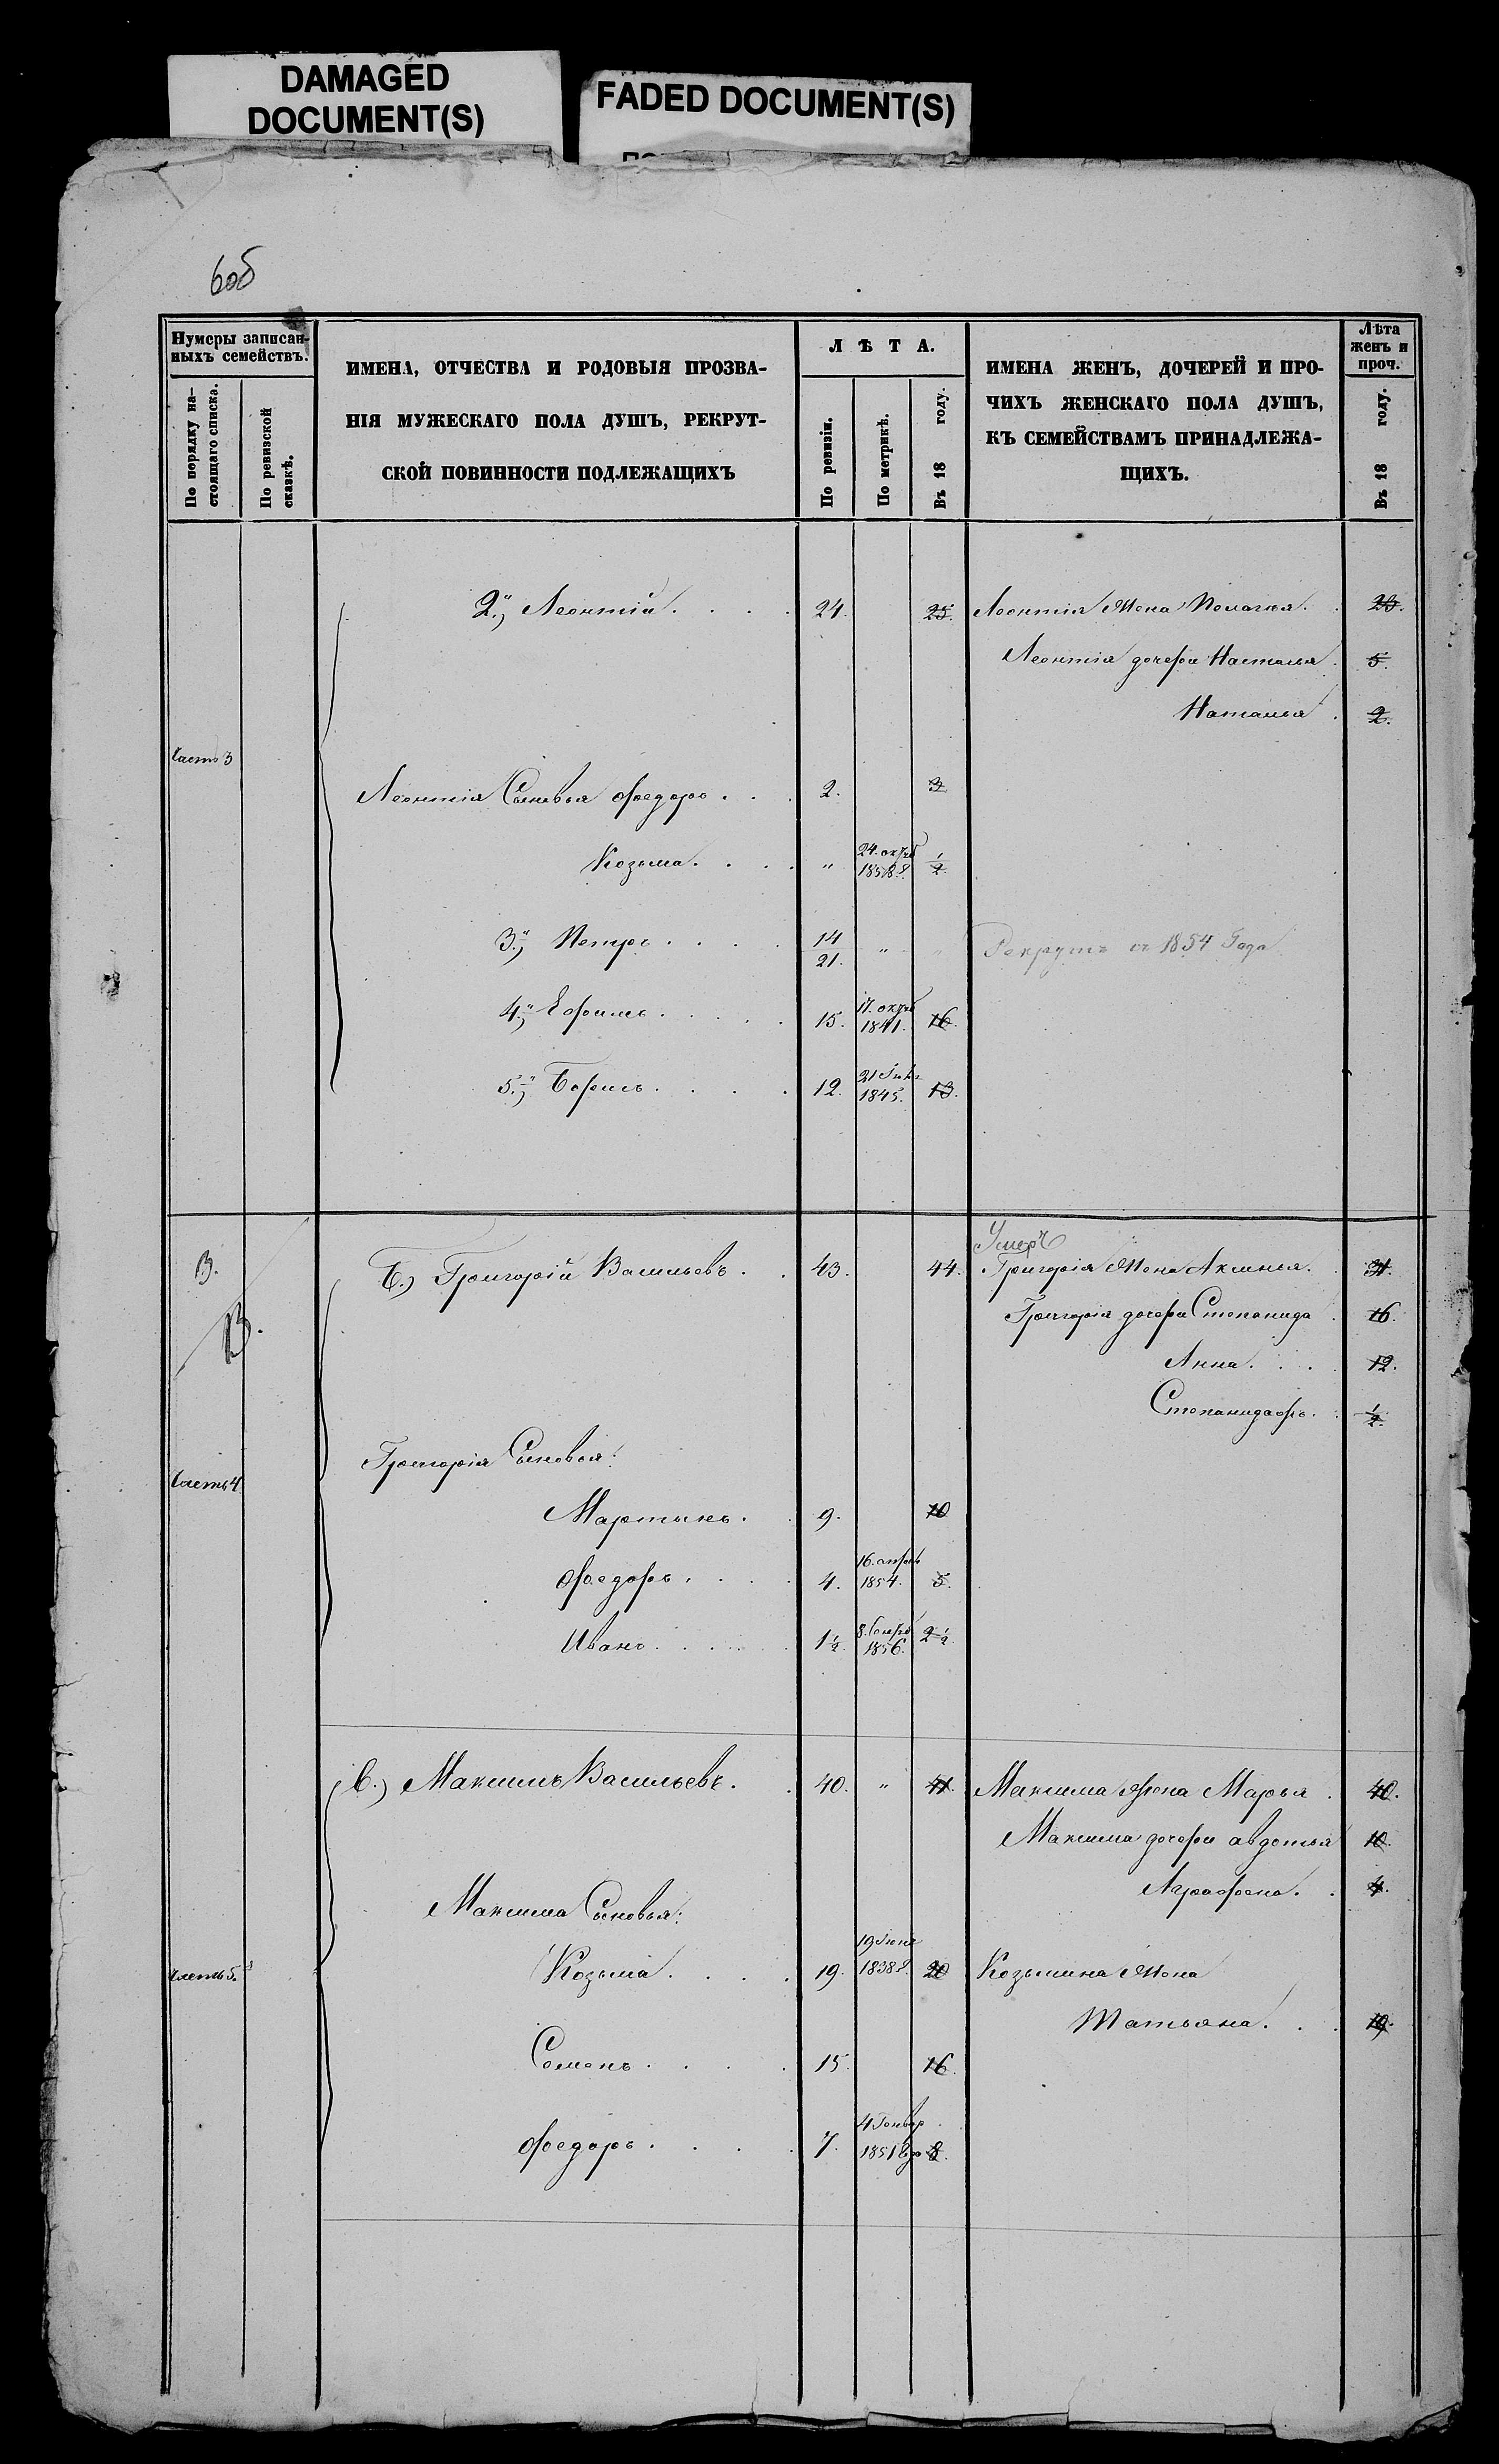 DAMAGED
DOCUMENT(S)
FADED DOCUMENT(S)
6об
Нумеры записан-
ныхъ семействъ.
По порядку на-
стоящаго списка.
По ревизской
сказкѣ.
ИМЕНА, ОТЧЕСТВА И РОДОВЫЯ ПРОЗВА-
НІЯ МУЖЕСКАГО ПОЛА ДУШЪ, РЕКРУТ-
СКОЙ ПОВИННОСТИ ПОДЛЕЖАЩИХЪ
ЛѢТА.
По ревизіи.
По метрикѣ.
Въ 18 году.
ИМЕНА ЖЕНЪ, ДОЧЕРЕЙ И ПРО-
ЧИХЪ ЖЕНСКАГО ПОЛА ДУШЪ,
КЪ СЕМЕЙСТВАМЪ ПРИНАДЛЕЖА-
ЩИХЪ.
Лѣта
женъ и
проч.
Въ 18 году.
2.й) Леонтій . . . . 24. 25. Леонтія Жена Пелагья . .
Леонтія дочери Настасья . 5.
Наталья . 2.
Часть 3
Леонтія Сыновья Федоръ . . . 2. 3
Козьма . . . . " 24. октяб 1858 г. 1/2
3.й) Петръ . . . . 14/21. " " Рекрутъ съ 1854 Года
4.й) Ефимъ . . . . . 15. 17. октяб 1841. 16.
5.й) Борисъ . . . . 12. 21 1845. 13.
Умеръ
В. Б.) Григорій Васильевъ . . 43. 44. Григорія Жена Аксинья . . 31.
В. Григорія дочери Степанида . 16.
Анна . . . . 12.
Степанида . . 1/2.
Григорія Сыновья:
Часть 4
Мартынъ . . 9. 10
Федоръ . . . . 4. 16. апрѣль 1854. 5.
Иванъ . . . . . 1 1/2. 8. 1856. 2 1/2.
В.) Максимъ Васильевъ . . 40. " 41. Максима Жена Марья . 40.
Максима дочери авдотья 10.
Аграфена . . 4.
Максима Сыновья:
Часть 5. Козьма . . . . 19. 19 Іюня 1838 г. 20 Козьмина Жена
Татьяна . . . 19.
Семенъ . . . . 15. 16.
Федоръ . . . . 7. 4 Генвар 1851 8.